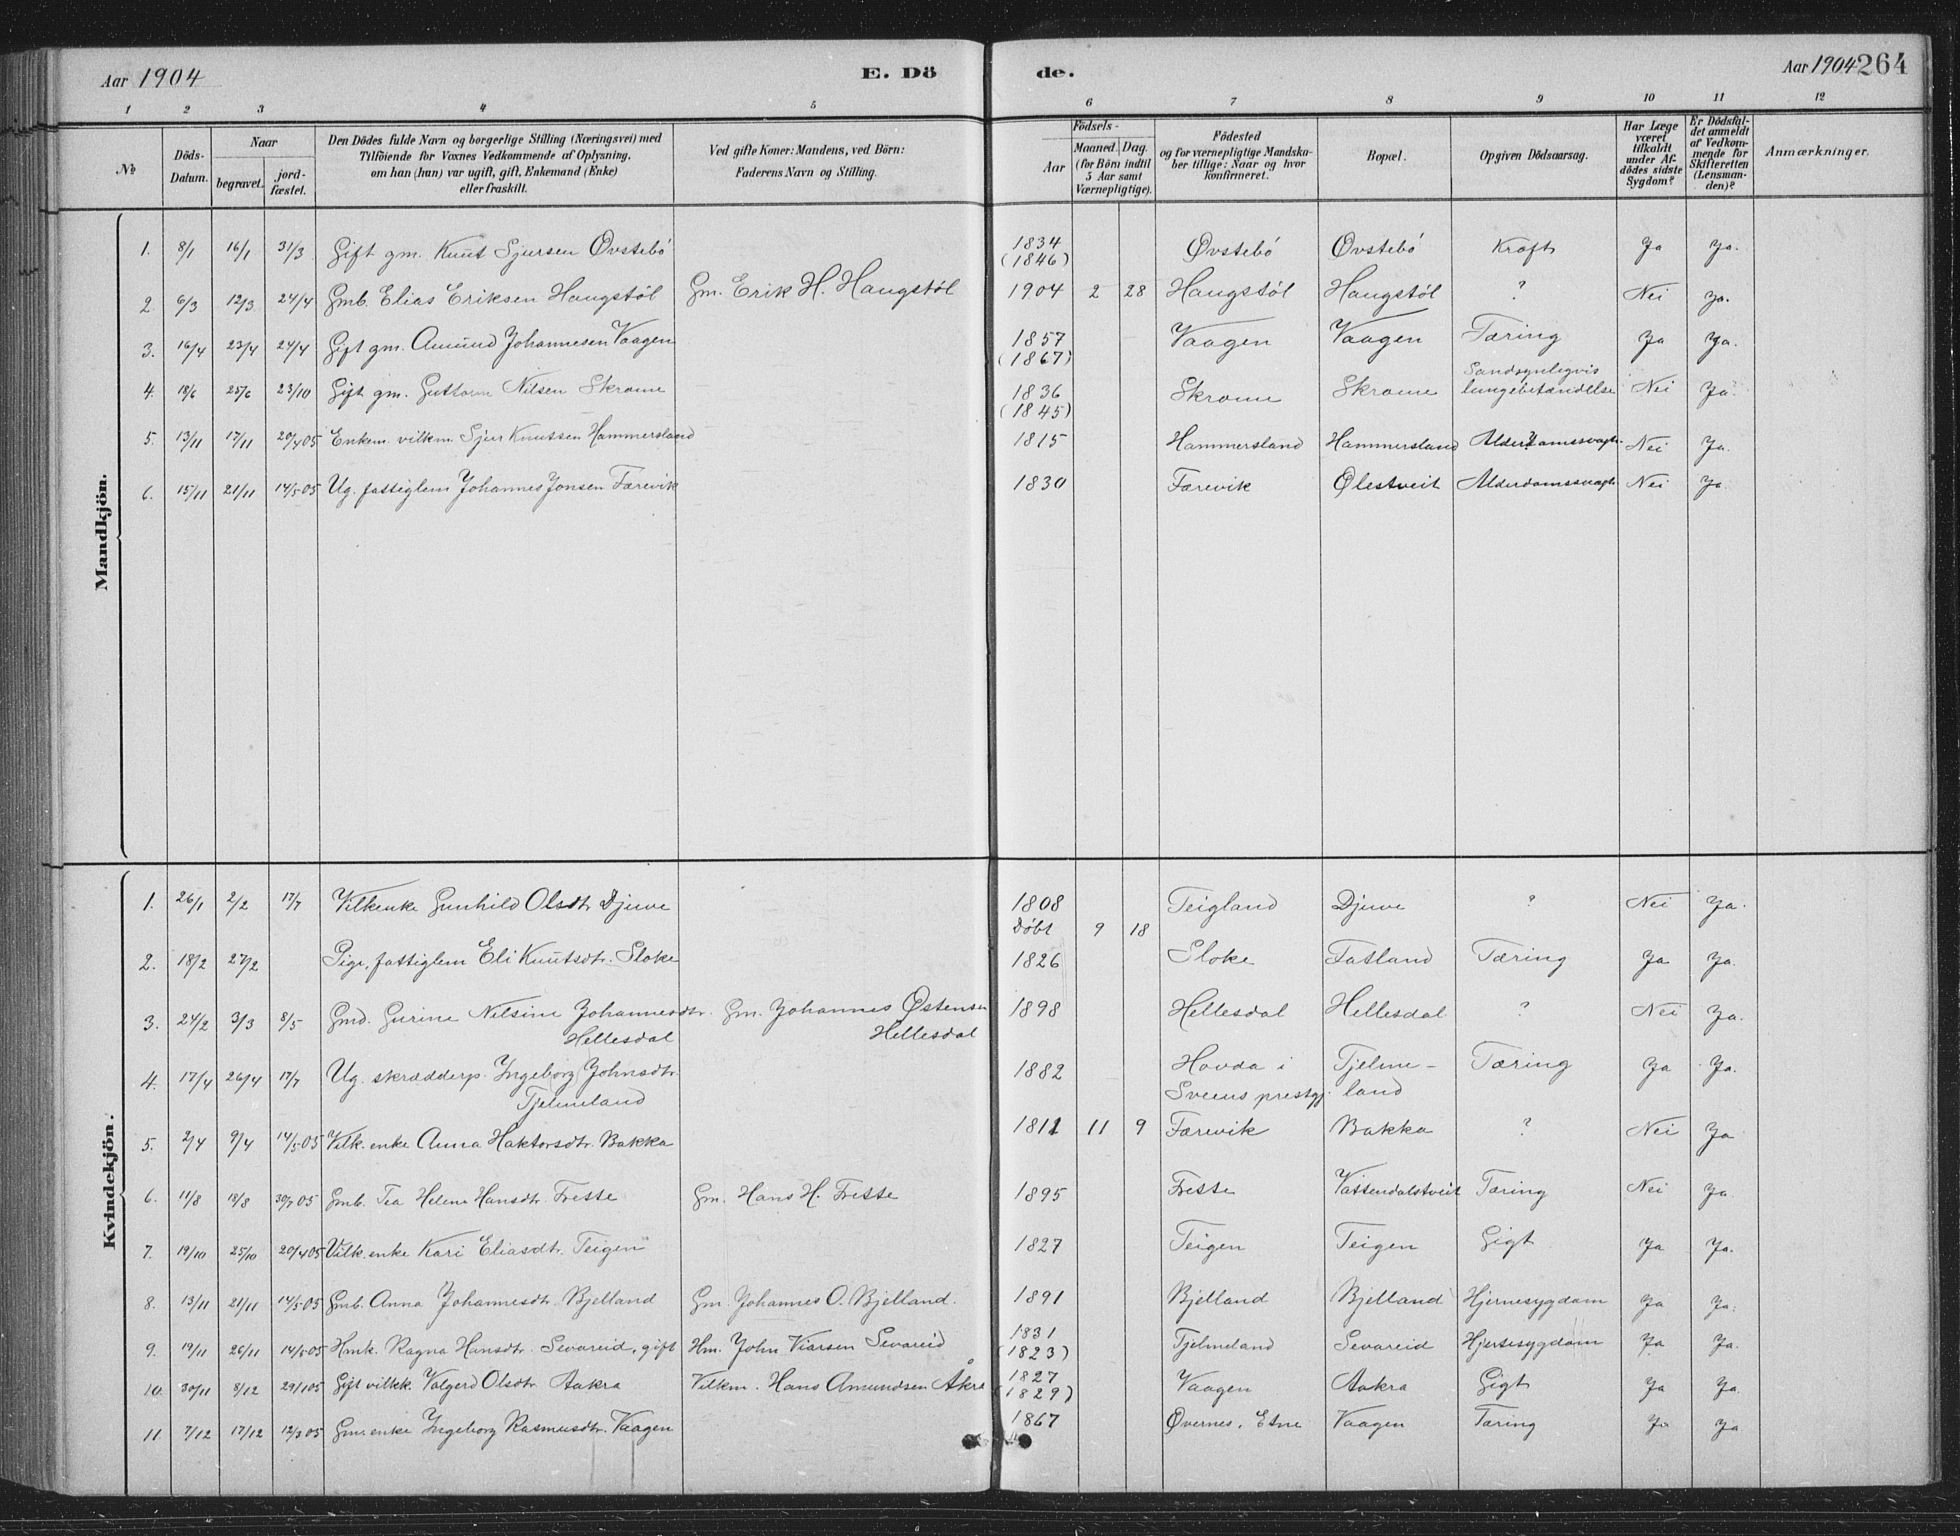 Aar 1904 E. Dö de. Aar 1904 264
1 2 3 4 5 6 7 8 9 10 11 12
№ Döds-Datum. Naar begravet. jord-fæstet. Den Dödes fulde Navn og borgerlige Stilling (Næringsvei) med Tilföiende for Voxnes Vedkommende af Oplysning, om han (hun) var ugift, gift, Enkemand (Enke) eller fraskilt. Ved gifte Koner: Mandens, ved Börn: Faderens Navn og Stilling. Födsels- Aar Maaned. Dag. (for Börn indtil 5 Aar samt Værnepligtige). Födested og for værnepligtige Mandskaber tillige: Naar og hvor Konfirmeret. Bopæl. Opgiven Dödsaarsag. Har Læge været tilkaldt under Afdödes sidste Sygdom? Er Dödsfaldet anmeldt af Vedkommende for Skifteretten (Lensmanden)? Anmærkninger.
Mandkjön.
1. 8/1 16/1 31/3 Gift gm. Knut Sjursen Øvstebö 1834 (1846) Øvstebö Øvstebö Kræft Ja Ja.
2. 6/3 12/3 24/4 Gmb. Elias Eriksen Haugstöl Gm. Erik H. Haugstöl 1904 2 28 Haugstöl Haugstöl ? Nei Ja.
3. 16/4 23/4 24/4 Gift gm. Amund Johannesen Vaagen 1857 (1867) Vaagen Vaagen Tæring Ja Ja.
4. 18/6 25/6 23/10 Gift gm. Guttorm Nilsen Skrome 1836 (1845) Skrome Skrome Sandsynligvis lungebetændelse Nei Ja.
5. 13/11 17/11 20/4 05 Enkem. vilkm. Sjur Knutsen Hammersland 1815 Hammersland Hammersland Alderdomssvagh. Nei Ja.
6. 15/11 21/11 14/5 05 Ug. fattiglem Johannes Jonsen Færevik 1830 Færevik Ølestveit Alderdomssvagh. Nei Ja
Kvindekjön.
1. 26/1 2/2 17/7 Vilkenke Gunhild Olsdtr Djuve 1808 Döbt 9 18 Teigland Djuve ? Nei Ja.
2. 18/2 27/2 Pige, fattiglem Eli Knutsdtr. Sloke 1826 Sloke Fatland Tæring Ja Ja.
3. 24/2 3/3 8/5 Gmd. Gurine Nilsine Johannesdtr. Hellesdal Gm. Johannes Østensen Hellesdal 1898 Hellesdal Hellesdal ? Nei Ja.
4. 17/4 26/4 17/7 Ug. skrædderp. Ingeborg Johnsdtr. Tjelmeland 1882 Hovda i Sveens prestgj. Tjelmeland Tæring Ja Ja.
5. 2/4 9/4 14/5 05 Vilk. enke Anna Haktorsdtr. Bakka 1811 11 9 Færevik Bakka ? Nei Ja
6. 11/8 18/8 30/7 05 Gmb. Tea Helene Hansdtr. Frette Gm. Hans H. Frette 1895 Frette Vattendalstveit Tæring Nei Ja.
7. 19/10 25/10 20/4 05 Vilk. enke Kari Eliasdtr. Teigen 1827 Teigen Teigen Gigt Ja Ja.
8. 13/11 21/11 14/5 05 Gmb. Anna Johannesdtr. Bjelland Gm. Johannes O. Bjelland. 1891 Bjelland Bjelland Hjernesygdom Ja Ja.
9. 19/11 26/11 14/5 05 Hmk. Ragna Hansdtr. Sevareid, gift Hm. John Viarsen Sevareid 1831 (1823) Tjelmeland Sevareid Hjertesygdom Ja Ja.
10. 30/11 8/12 29/1 05 Gift vilkk. Valgerd Olsdtr Aakra Vilkm. Hans Amundsen Åkra 1827 (1829) Vaagen Aakra Gigt Ja Ja.
11. 7/12 17/12 12/3 05 Gm. enke Ingeborg Rasmusdtr. Vaagen 1867 Øvernes, Etne Vaagen Tæring Ja Ja